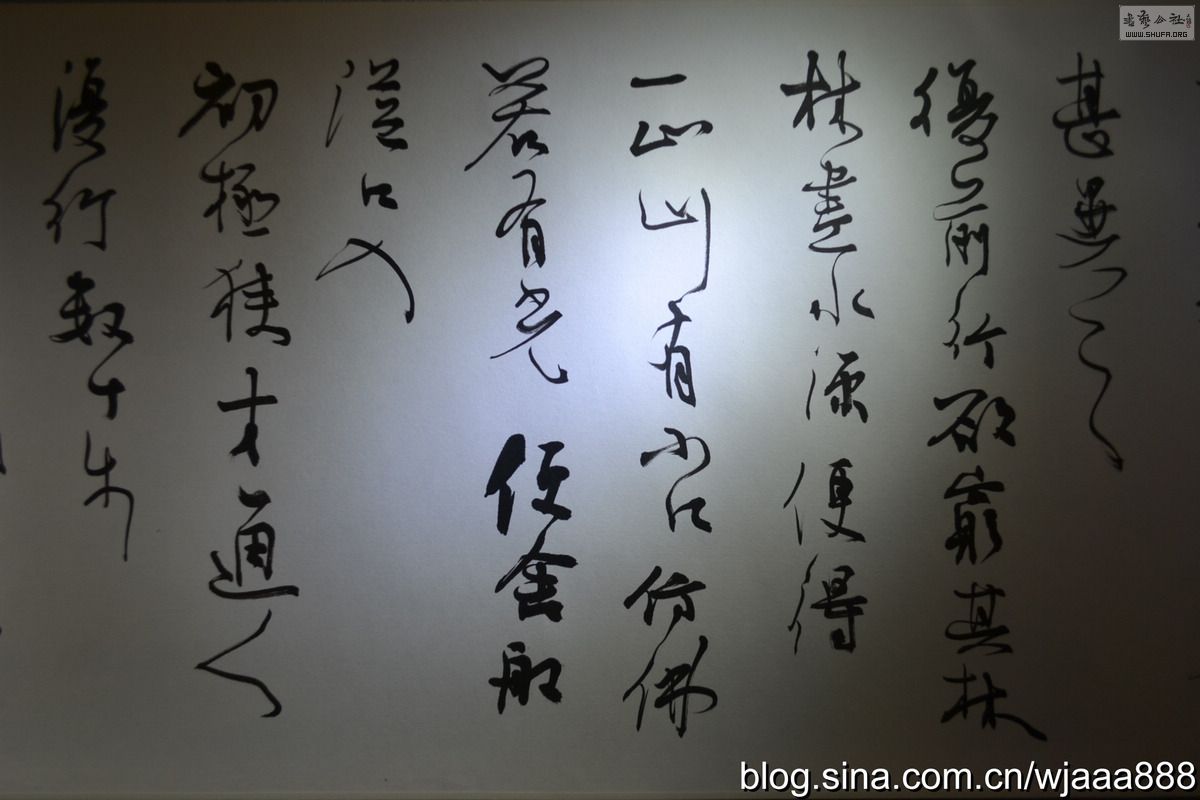 甚異之
復前行欲窮其林
林盡水源便得
一山山有小口仿佛
若有光便舍船
從口入
初極狹才通人
復行數十步
書藝公社
WWW.SHUFA.ORG
blog.sina.com.cn/wjaaa888